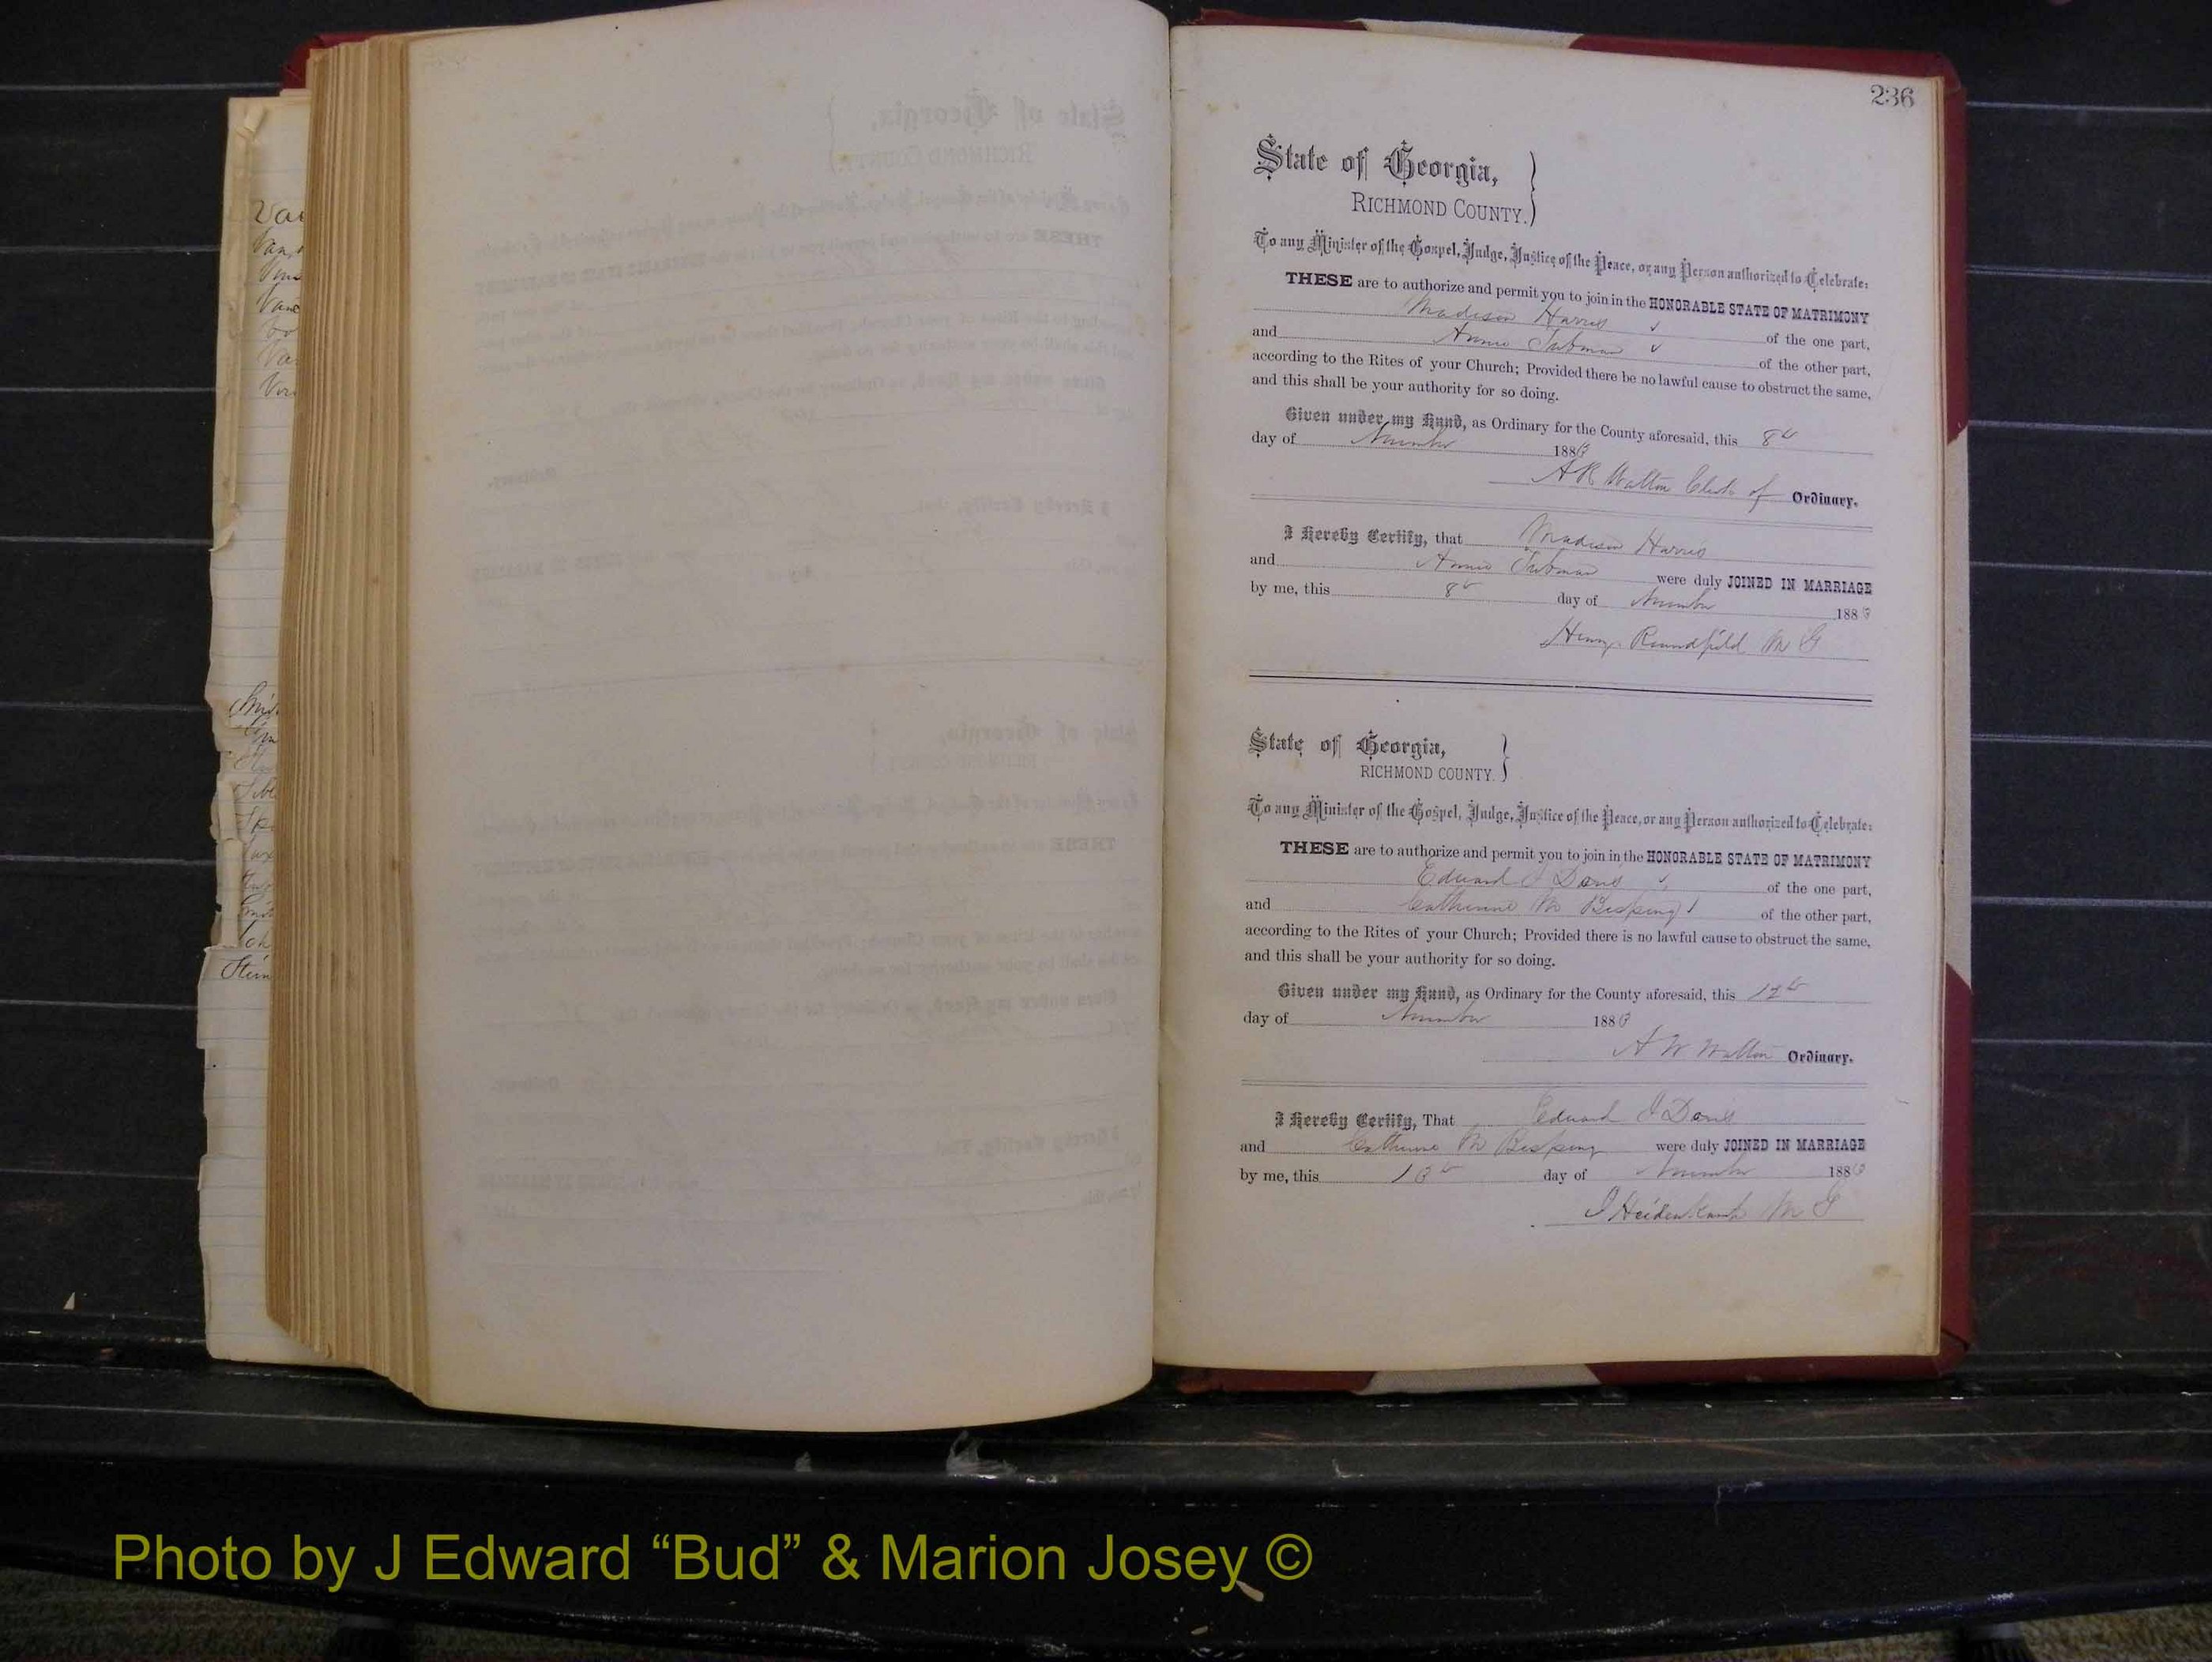 236
State of Georgia,
RICHMOND COUNTY.
To any Minister of the Gospel, Judge, Justice of the Peace, or any Person authorized to Celebrate:
THESE are to authorize and permit you to join in the HONORABLE STATE OF MATRIMONY
Madison Harris of the one part,
and Annie of the other part,
according to the Rites of your Church; Provided there be no lawful cause to obstruct the same,
and this shall be your authority for so doing.
Given under my Hand, as Ordinary for the County aforesaid, this 8th
day of November 1883
A R Walton Clerk of Ordinary.
I Hereby Certify, that Madison Harris
and Annie were duly JOINED IN MARRIAGE
by me, this 8th day of November 1883
Henry Roundfield M G
State of Georgia,
RICHMOND COUNTY.
To any Minister of the Gospel, Judge, Justice of the Peace, or any Person authorized to Celebrate:
THESE are to authorize and permit you to join in the HONORABLE STATE OF MATRIMONY
Edward J Doris of the one part,
and Catherine M Besping of the other part,
according to the Rites of your Church; Provided there is no lawful cause to obstruct the same,
and this shall be your authority for so doing.
Given under my Hand, as Ordinary for the County aforesaid, this 12th
day of November 1883
Walton Ordinary.
I Hereby Certify, That Edward J Doris
and Catherine M Besping were duly JOINED IN MARRIAGE
by me, this 13th day of November 1883
J Heidenkamp M G
Photo by J Edward “Bud” & Marion Josey ©